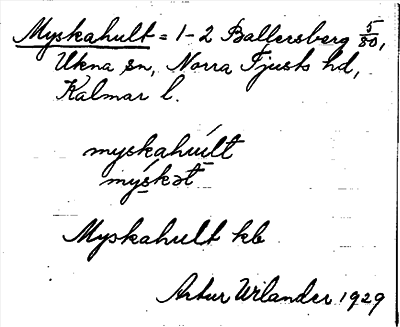 Myskahult = 1-2 Ballersberg 5/80,
Ukna sn, Norra Tjusts hd,
Kalmar l.
myskahúlt
mýskət
Myskahult kb
Artur Wilander 1929